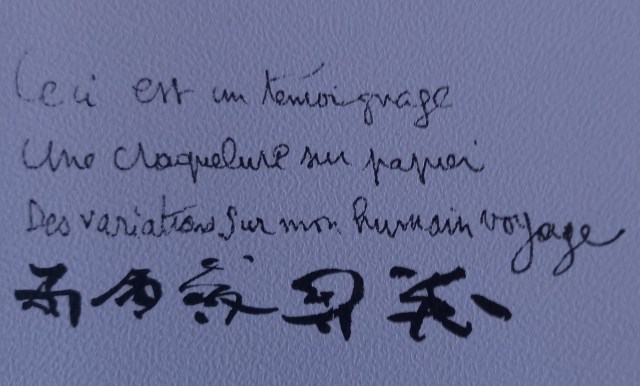 Ceci est un témoignage
Une craquelure sur papier
Des variations sur mon humain voyage